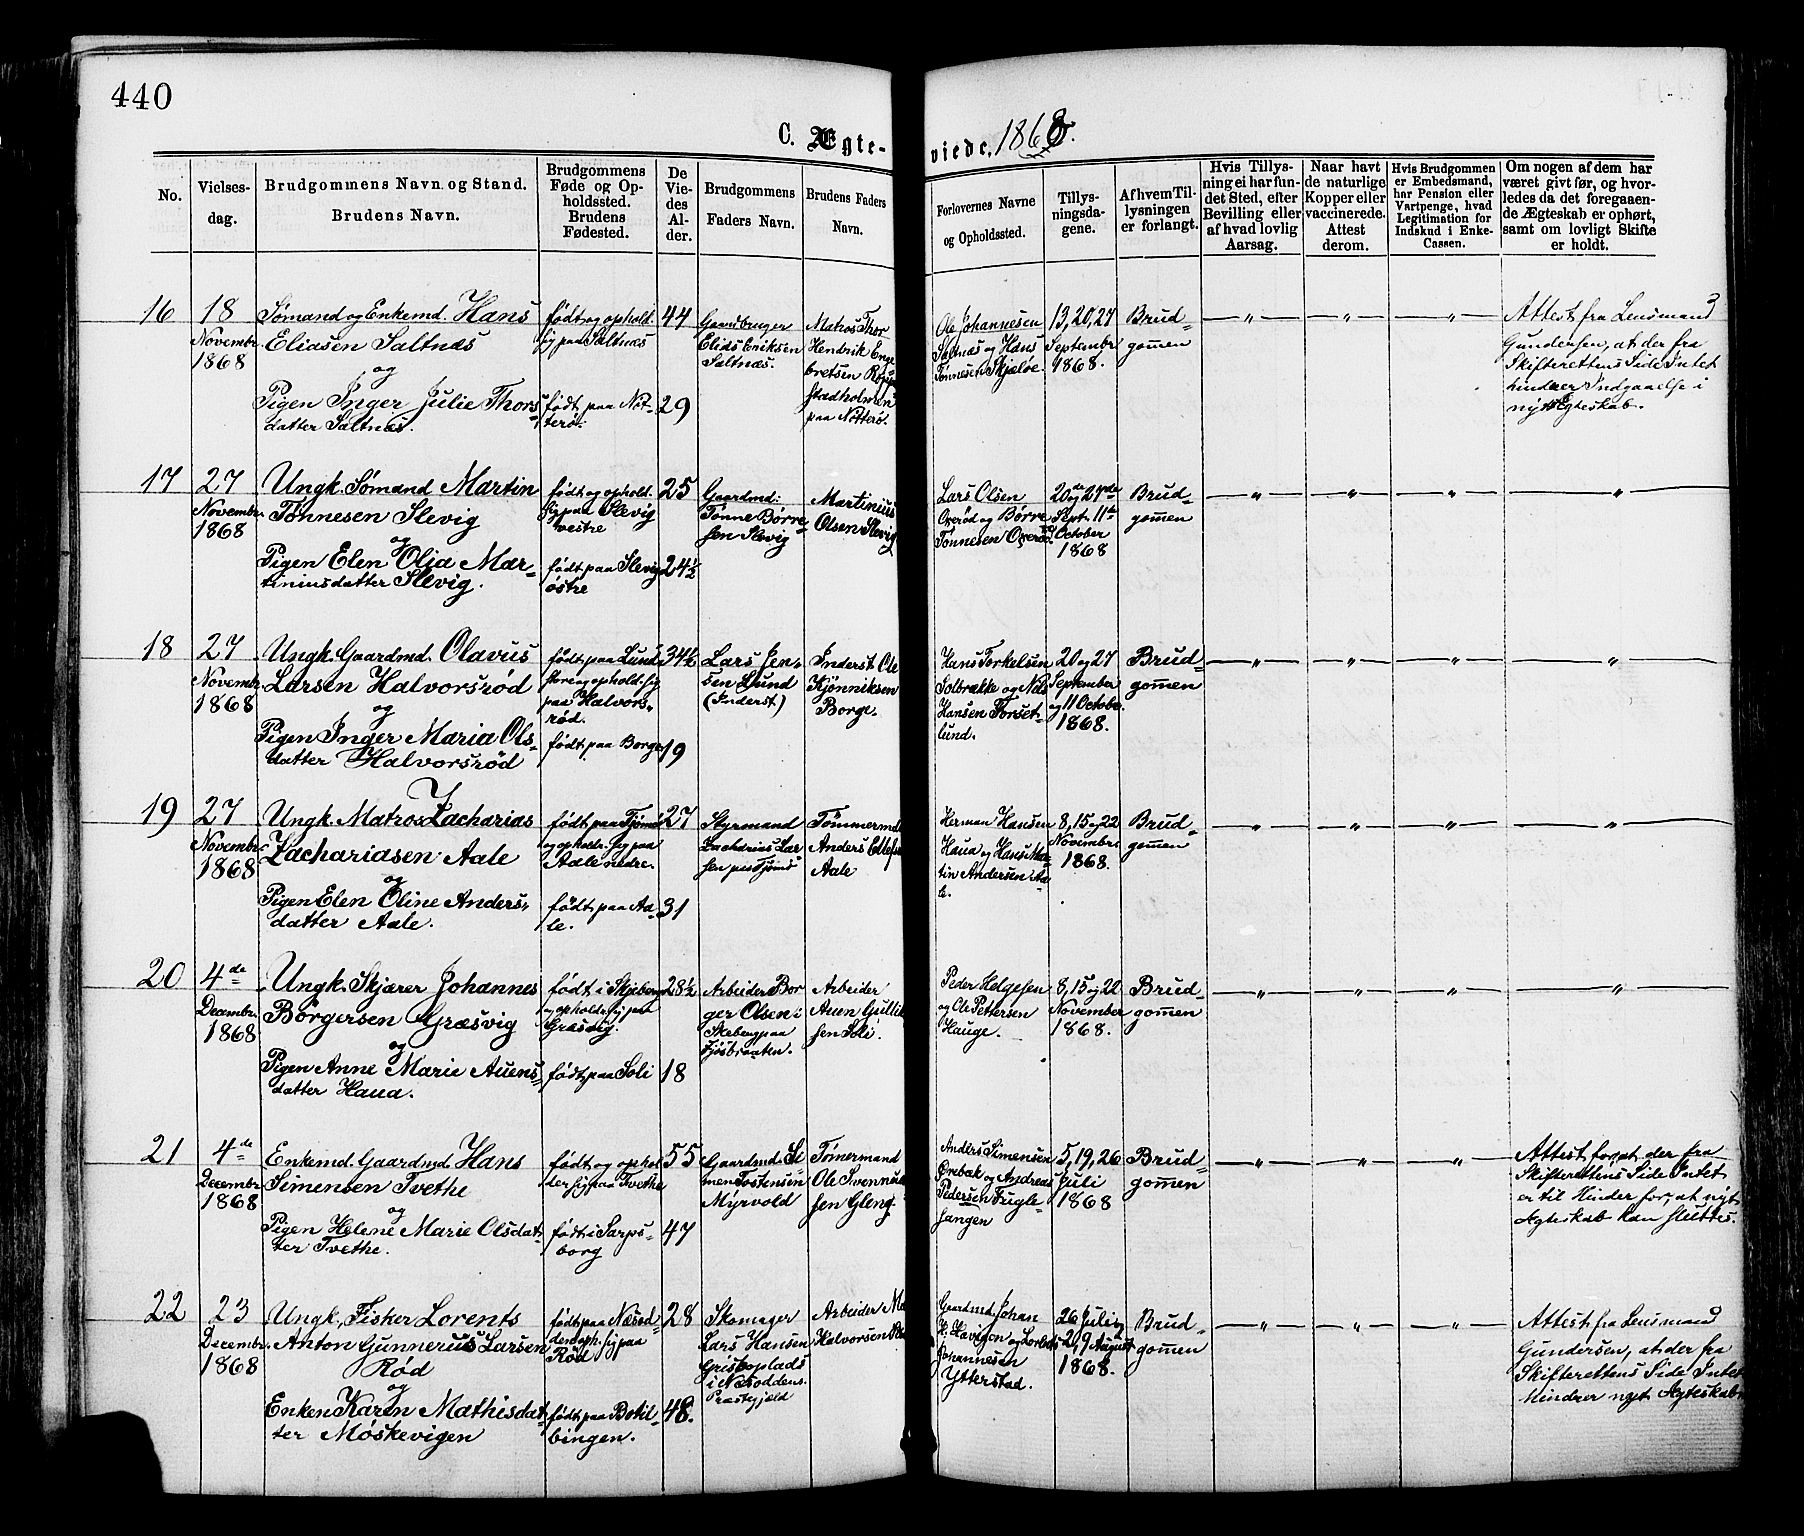 440
C. Ægte-
viede, 1868.
No.
Vielses-
dag.
Brudgommens Navn og Stand.
Brudens Navn.
Brudgommens
Føde og Op-
holdssted.
Brudens
Fødested.
De
Vie-
des
Al-
der.
Brudgommens
Faders Navn.
Brudens Faders
Navn.
Forlovernes Navne
og Opholdssted.
Tillys-
ningsda-
gene.
Af hvem Til-
lysningen
er forlangt.
Hvis Tillys-
ning ei har fun-
det Sted, efter
Bevilling eller
af hvad lovlig
Aarsag.
Naar havt
de naturlige
Kopper eller
vaccinerede.
Attest
derom.
Hvis Brudgommen
er Embedsmand,
har Pension eller
Vartpenge, hvad
Legitimation for
Indskud i Enke-
Cassen.
Om nogen af dem har
været givt før, og hvor-
ledes da det foregaaen-
de Ægteskab er ophørt,
samt om lovligt Skifte
er holdt.
16
18
Novembr.
1868
Sømand og Enkemd. Hans
Eliasen Saltnæs
og
Pigen Inger Julie Thors-
datter Saltnæs.
født og ophold.
sig paa Saltnæs
født paa Nøt-
terø.
44
29
Gaardbruger
Elias Eriksen
Saltnæs.
Matros Thor
Hendrik Enge
bretsen
Stadholmen
paa Nøtterø.
Ole Johannesen
Saltnæs og Hans
Tønnesen Skjæløe.
13, 20, 27
Septembr
1868.
Brud-
gomen
— " —
— " —
— " —
Attest fra Lensmand
Gundersen, at der fra
Skifterettens Side Intet
hindrer Indgaaelse i
nyt Ægteskab.
17
27
Novembr.
1868
Ungk. Sømand Martin
Tønnesen Slevig
og
Pigen Elen Olia Mar-
tiniusdatter Slevig.
født og ophold.
sig paa Slevig
vestre
født paa Slevig
østre
25
24½
Gaardmd:
Tønne Børre-
sen Slevig
Martinius
Olsen Slevig
Lars Olsen
Oxerød og Børre
Tønnesen Oxerød.
20de og 27de
Sept. 11te
October
1868
Brud-
gomen
— " —
— " —
— " —
"
18
27
Novembr.
1868
Ungk. Gaardmd. Olavus
Larsen Halvorsrød
og
Pigen Inger Maria Ols-
datter Halvorsrød
født paa Lund
store og ophold. sig
paa Halvors-
rød.
født paa Borge
34½
19
Lars Jen-
sen Lund
(Inderst)
Inderst Ole
Kjønniksen
Borge.
Hans Torkelsen
Solbrække og Nils
Hansen Torset-
lund.
20 og 27
September
og 11 October.
1868.
Brud-
gomen
— " —
— " —
— " —
"
19
27
Novembr.
1868
Ungk. Matros Zacharias
Zachariasen Aale
og
Pigen Elen Oline Anders-
datter Aale.
født paa Tjømø
og opholdr. sig paa
Aale nedre.
født paa Aa-
le.
27
31
Styrmand
Zacharias Lar
sen paa Tjømø
Tømmermd
Anders
Aale
Herman Hansen
Haua og Hans Mar-
tin Andersen Aa-
le.
8, 15 og 22
Novembr.
1868.
Brud-
gomen
— " —
— " —
— " —
"
20
4de
Decembr.
1868
Ungk. Skjærer Johannes
Børgersen Græsvig
og
Pigen Anne Marie Auens-
datter Haua.
født i Skjeberg
og opholdr. sig paa
Græsvig.
født paa Soli
28½
18
Arbeider Bør
ger Olsen i
Skeberg paa
Fjøsbraaten.
Arbeider
Auen Gullik
sen Soli
Peder Helgesen
og Ole Pettersen
Hauge.
8, 15 og 22
November
1868.
Brud-
gomen
— " —
— " —
— " —
"
21
4de
Decembr.
1868
Enkemd. Gaardmd Hans
Simensen Tvethe
og
Pigen Helene Marie Olsdat-
ter Tvethe.
født og ophol
der sig paa Tvethe
født i Sarps-
borg
55
47
Gaardmd. Si
men Tostensen
Myrvold
Tømermand
Ole Svennund
sen Gleng.
Anders Simensen
Ørebæk og Andreas
Pedersen Fugle-
sangen
5, 19, 26
Juli
1868
Brud-
gomen
— " —
— " —
— " —
Attest for, at der fra
Skifterettens Side Intet
er til Hinder for, at nyt
Ægteskab kan sluttes.
22
23
Decembr.
1868
Ungk. Fisker Lorents
Anton Gunnerus Larsen
Rød
og
Enken Karen Mathisdat-
ter Møskevigen
født paa Næsod-
den oph. sig paa
Rød
født paa Botil-
bingen.
28
48.
Skomager
Lars Hansen
Griseplads
i Næsoddens
Præstegjeld
Arbeider
Halvorsen
Gaardmd. Johan
H. Havigen og
Johannesen
Ytterstad.
26 Juli og
2, 9 August
1868.
Brud-
gomen
— " —
— " —
— " —
Attest fra Lensmand
Gundersen, at der fra
Skifterettens Side Intet
hindrer nyt Ægteskab